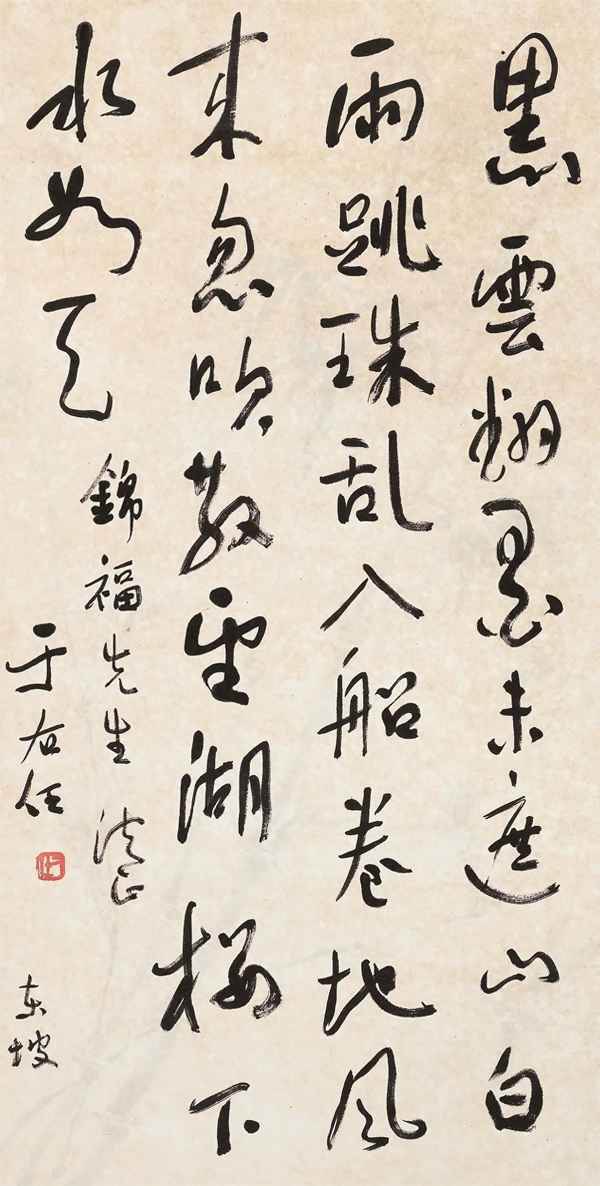 黑雲翻墨未遮山白
雨跳珠乱入船卷地风
来忽吹散望湖楼下
水如天
錦福先生 法正
于右任
东坡